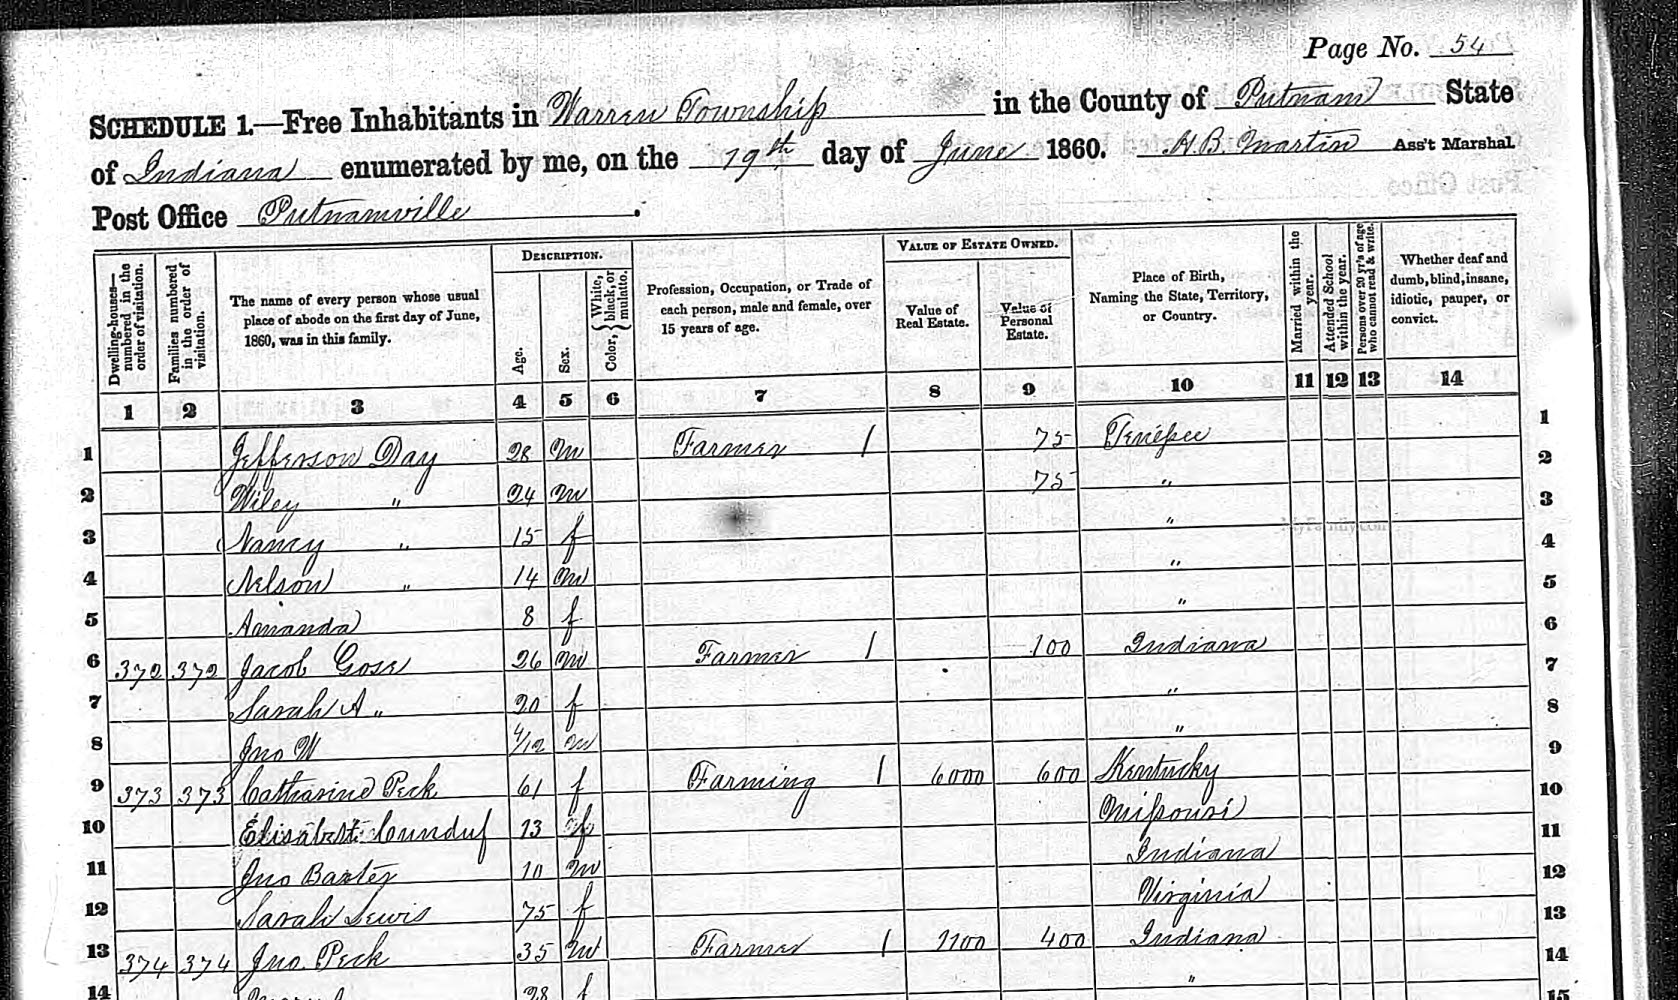 Page No. 54
SCHEDULE 1.—Free Inhabitants in Warren Township in the County of Putnam State
of Indiana enumerated by me, on the 19th day of June 1860. H. B. Martin Ass't Marshal.
Post Office Putnamville.
Dwelling-houses—numbered in the order of visitation.
Families numbered in the order of visitation.
The name of every person whose usual place of abode on the first day of June, 1860, was in this family.
DESCRIPTION.
Age.
Sex.
Color, { White, black, or mulatto.
Profession, Occupation, or Trade of each person, male and female, over 15 years of age.
VALUE OF ESTATE OWNED.
Value of Real Estate.
Value of Personal Estate.
Place of Birth, Naming the State, Territory, or Country.
Married within the year.
Attended School within the year.
Persons over 20 yr's of age who cannot read & write.
Whether deaf and dumb, blind, insane, idiotic, pauper, or convict.
1 2 3 4 5 6 7 8 9 10 11 12 13 14
1 Jefferson Day 28 m Farmer / 75 Tenessee 1
2 Wiley " 24 m 75 " 2
3 Nancy " 15 f " 3
4 Nelson " 14 m " 4
5 Amanda 8 f " 5
6 372 372 Jacob Gose 26 m Farmer / 100 Indiana 6
7 Sarah A " 20 f " 7
8 Jno W 4/12 m " 8
9 373 373 Catharine Peck 61 f Farming / 6000 600 Kentucky 9
10 13 f Missouri 10
11 Jno Baxter 10 m Indiana 11
12 Sarah Lewis 75 f Virginia 12
13 374 374 Jno. Peck 35 m Farmer / 1100 400 Indiana 13
14 28 f " 14
15
MyFamily.com